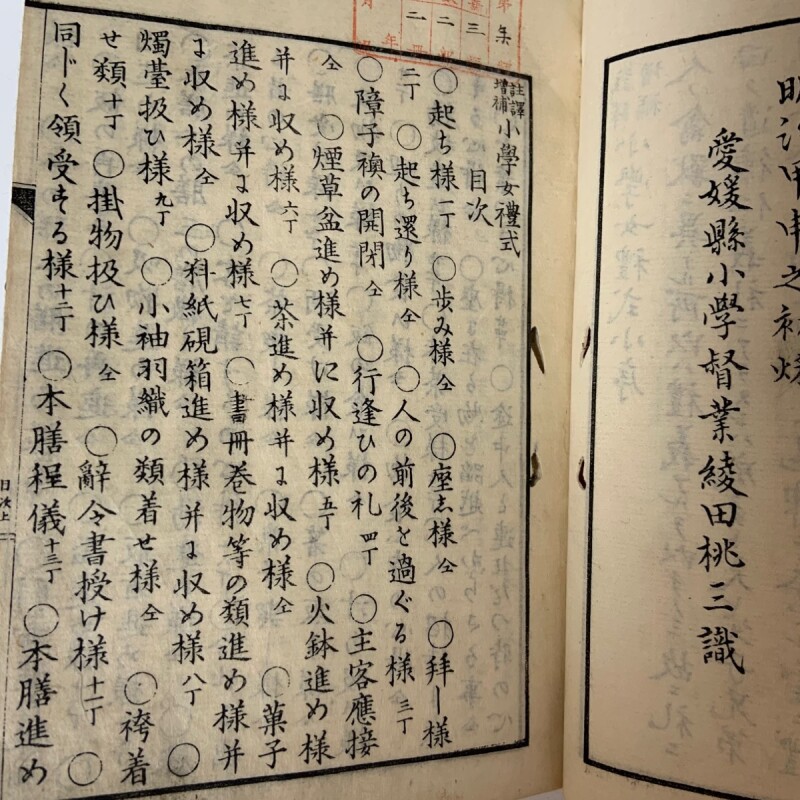 明治甲申之初
愛媛縣小學督業綾田桃三識
註譯増補小學女禮式
目次
◯起ち様一丁 ◯歩み様仝 ◯座し様仝 ◯拜し様
二丁 ◯起ち還り様仝 ◯人の前後を過ぐる様三丁
◯障子襖の開閉仝 ◯行逢ひの礼四丁 ◯主客應接
仝 ◯煙草盆進め様并に収め様五丁 ◯火鉢進め様
并に収め様六丁 ◯茶進め様并に収め様仝 ◯菓子
進め様并に収め様七丁 ◯書冊巻物等の類進め様并
に収め様仝 ◯料紙硯箱進め様并に収め様八丁 ◯
燭臺扱ひ様九丁 ◯小袖羽織の類着せ様仝 ◯袴着
せ類十丁 ◯掛物扱ひ様仝 ◯辭令書授け様十一丁 ◯
同じく領受する様十二丁 ◯本膳程儀十三丁 ◯本膳進め
目次上